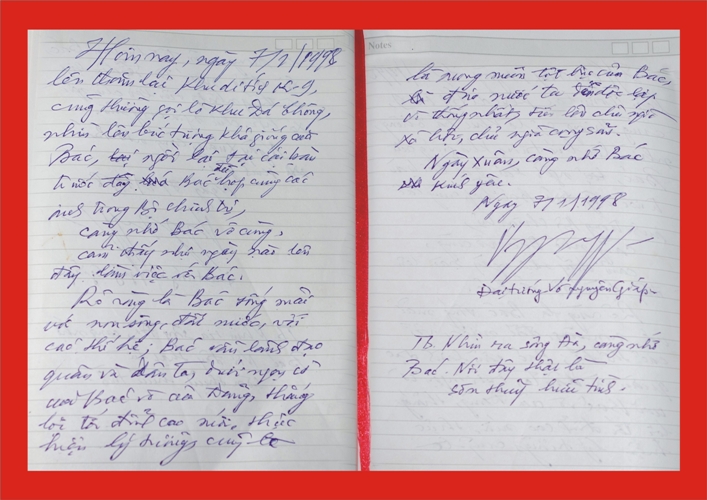 Hôm nay, ngày 7/1/1998
lên thăm lại Khu di tích K-9,
cũng thường gọi là Khu Đá Chông,
nhìn lên bức tượng khá giống của
Bác, ngồi lại tại cái bàn
trước đây Bác đã họp cùng các
anh trong Bộ chính trị,
càng nhớ Bác vô cùng,
cảm thấy như ngày nào lên
đây làm việc với Bác.
Rõ ràng là Bác sống mãi
với non sông, đất nước, với
các thế hệ; Bác vẫn lãnh đạo
quân và dân ta, dưới ngọn cờ
của Bác và của Đảng, thắng
lợi tới đỉnh cao nữa, thực
hiện lý tưởng cũng
Notes
là mong muốn tột bực của Bác,
đưa nước ta đến độc lập
và thống nhất, tiến lên chủ nghĩa
xã hội, chủ nghĩa cộng sản.
Ngày Xuân, càng nhớ Bác
kính yêu.
Ngày 7/1/1998
Đại tướng Võ Nguyên Giáp
Tb. Nhìn ra sông Đà, càng nhớ
Bác. Nơi đây thật là
sơn thuỷ hữu tình.